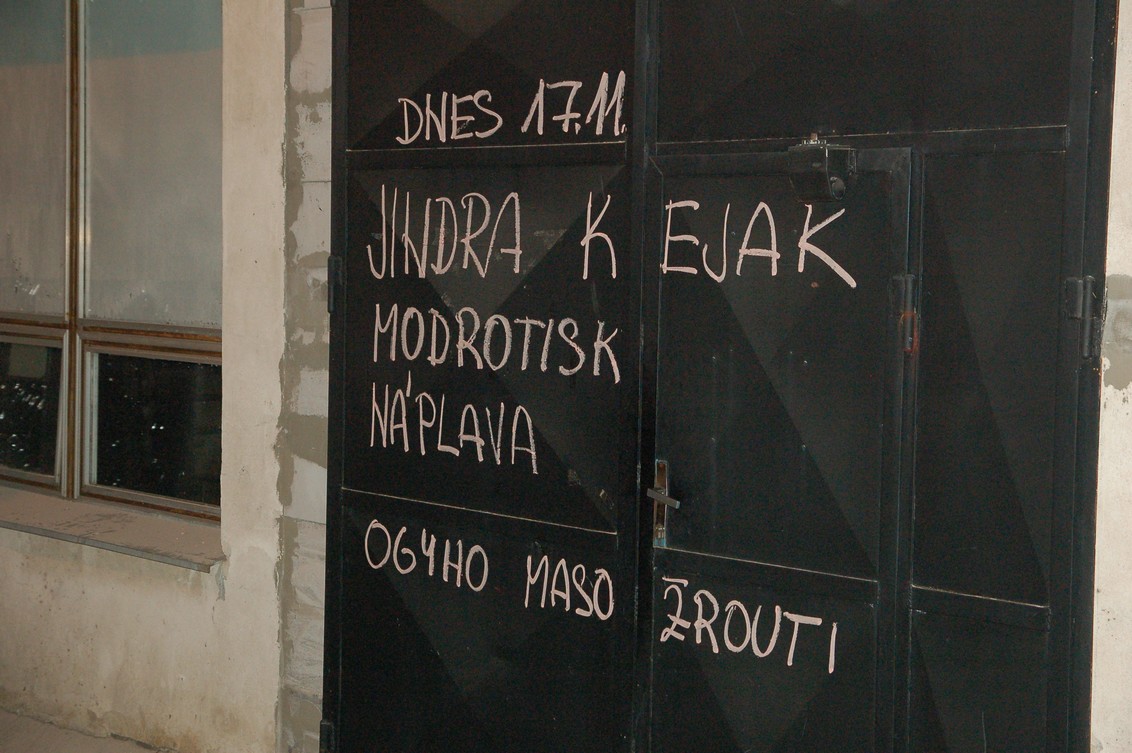 DNES 17.11.
JINDRA KEJAK
MODROTISK
NÁPLAVA
OGYHO MASOŽROUTI